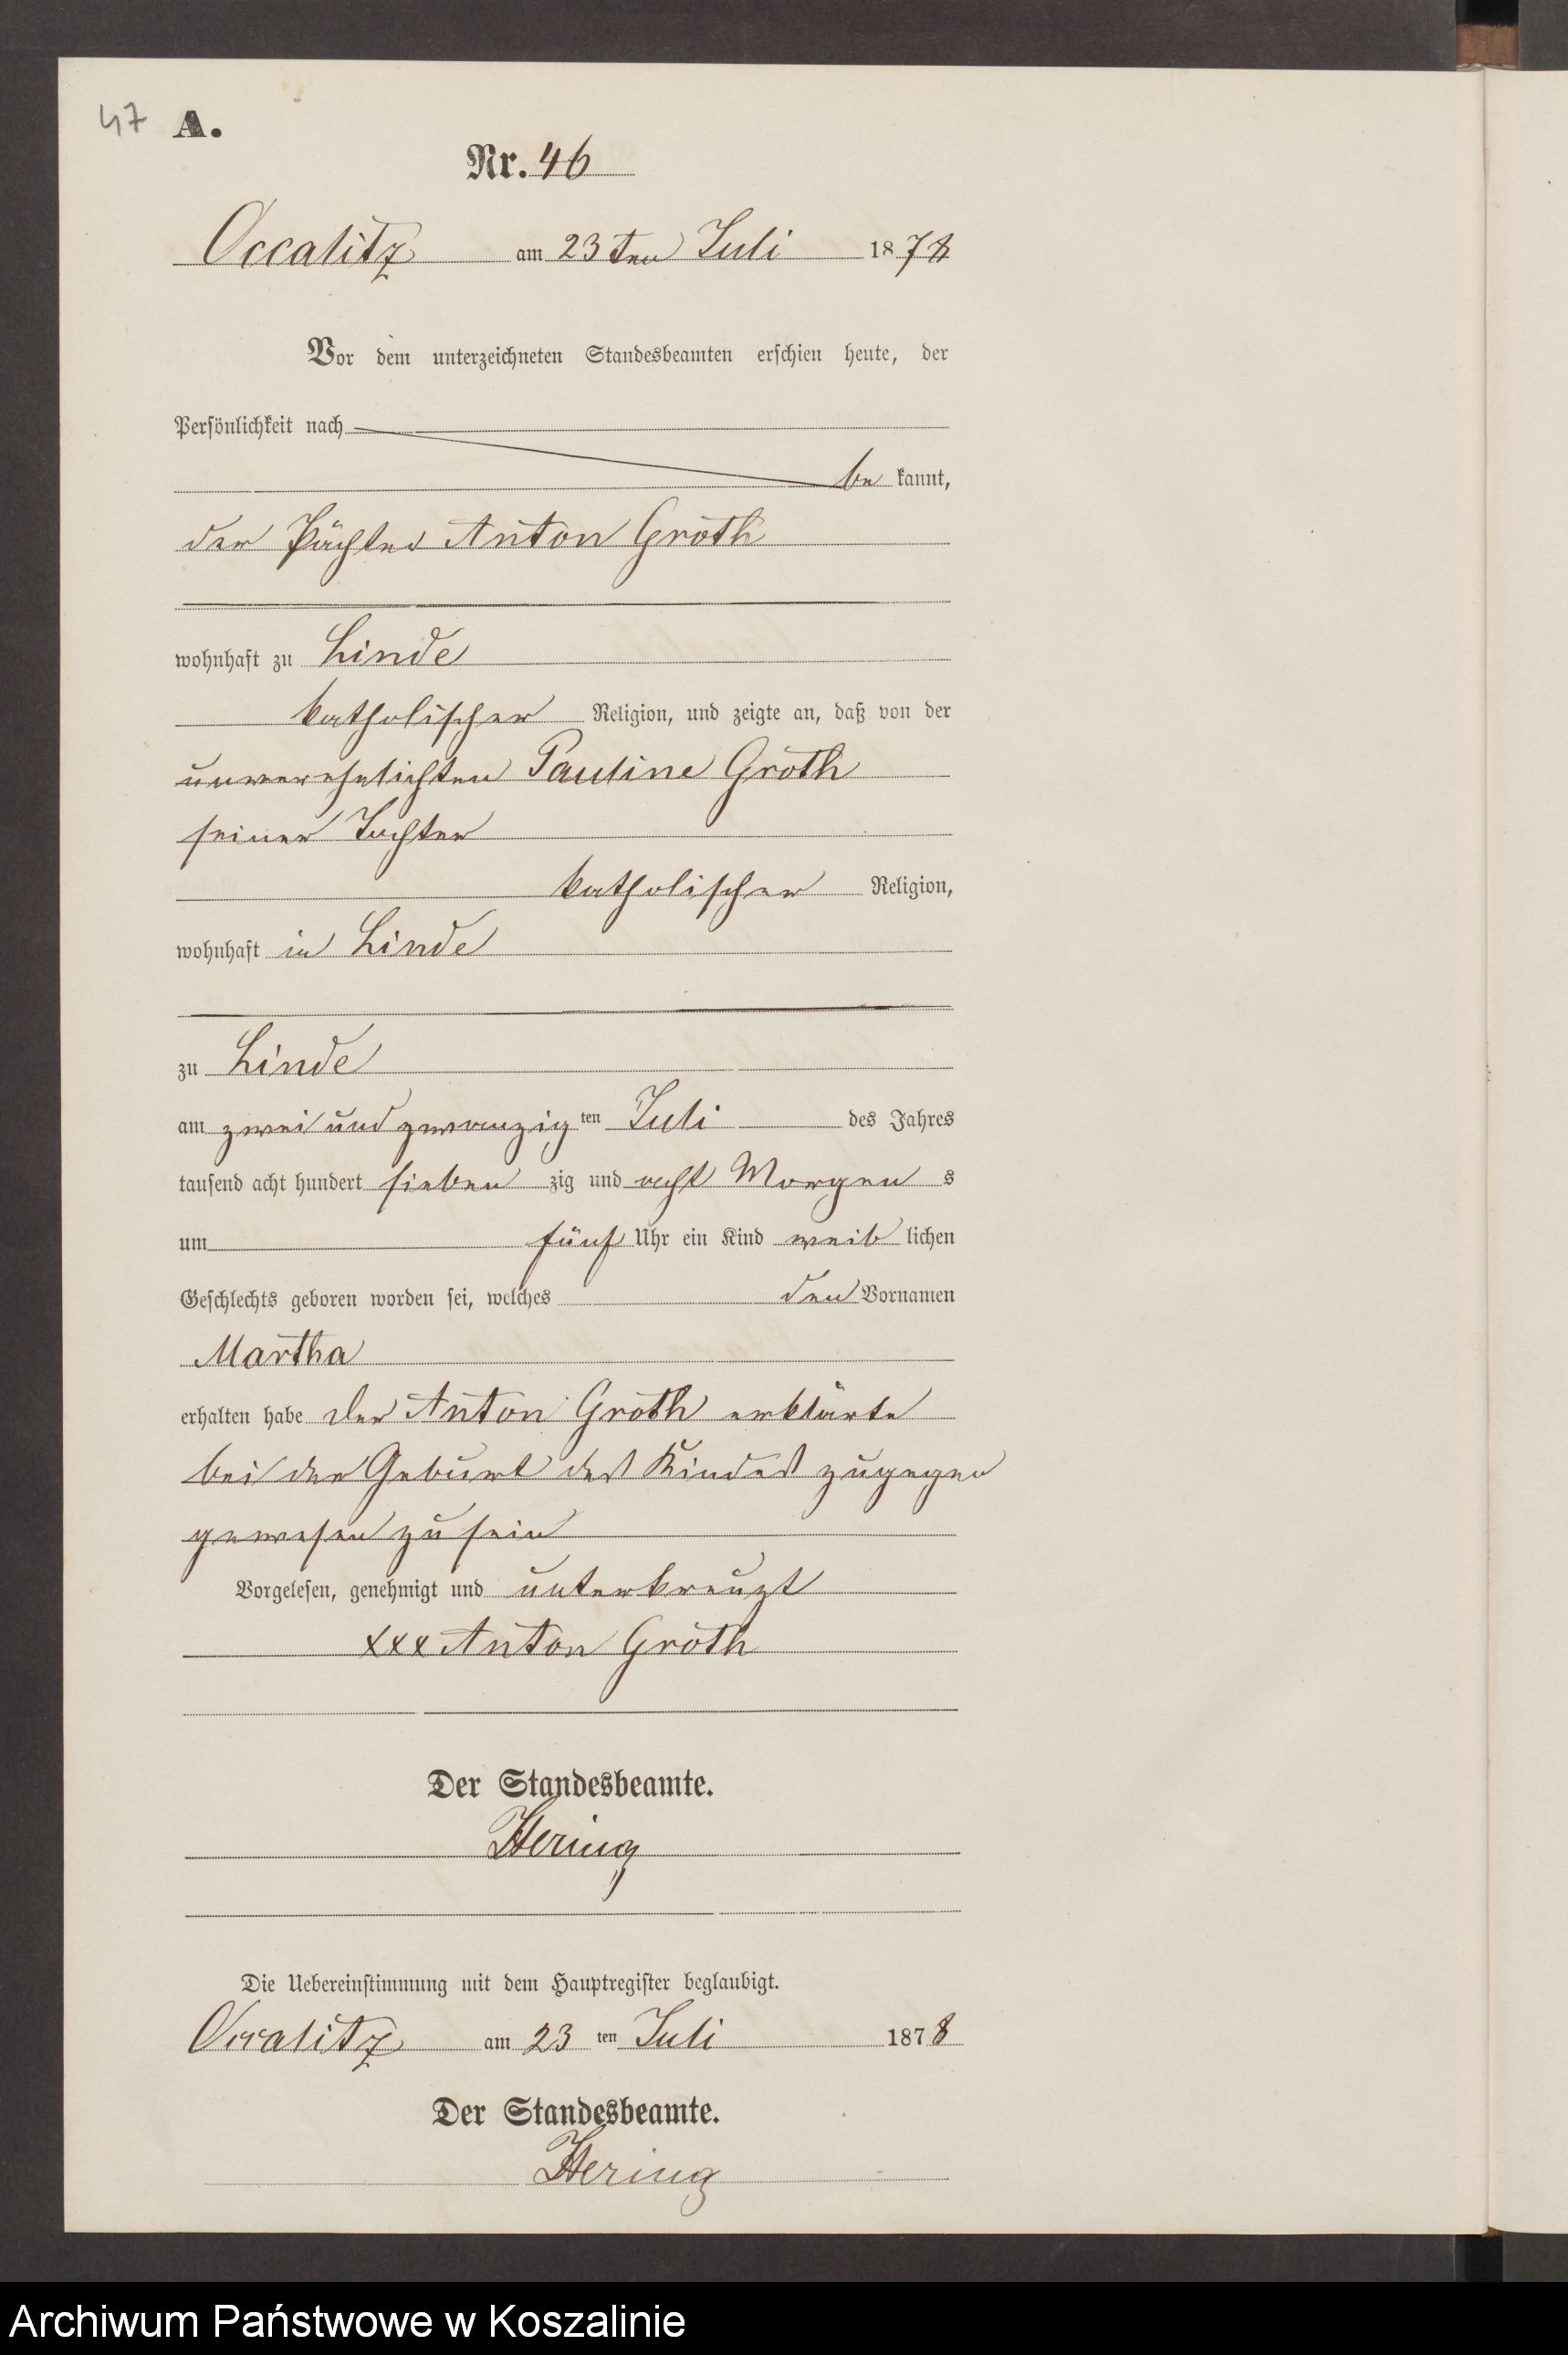 47 A.
Nr. 46
Occalitz am 23ten Juli 1878
Vor dem unterzeichneten Standesbeamten erschien heute, der
Persönlichkeit nach
be kannt,
der Pächter Anton Groth
wohnhaft zu Linde
katholischer Religion, und zeigte an, daß von der
unverehelichten Pauline Groth
seiner Tochter
katholischer Religion,
wohnhaft in Linde
zu Linde
am zwei und zwanzig ten Juli des Jahres
tausend acht hundert sieben zig und acht Morgen s
um fünf Uhr ein Kind weib lichen
Geschlechts geboren worden sei, welches den Vornamen
Martha
erhalten habe der Anton Groth erklärte
bei der Geburt des Kindes zugegen
gewesen zu sein
Vorgelesen, genehmigt und unterkreuzt
xxx Anton Groth
Der Standesbeamte.
Hering
Die Uebereinstimmung mit dem Hauptregister beglaubigt.
Occalitz am 23 ten Juli 1878
Der Standesbeamte.
Hering
Archiwum Państwowe w Koszalinie